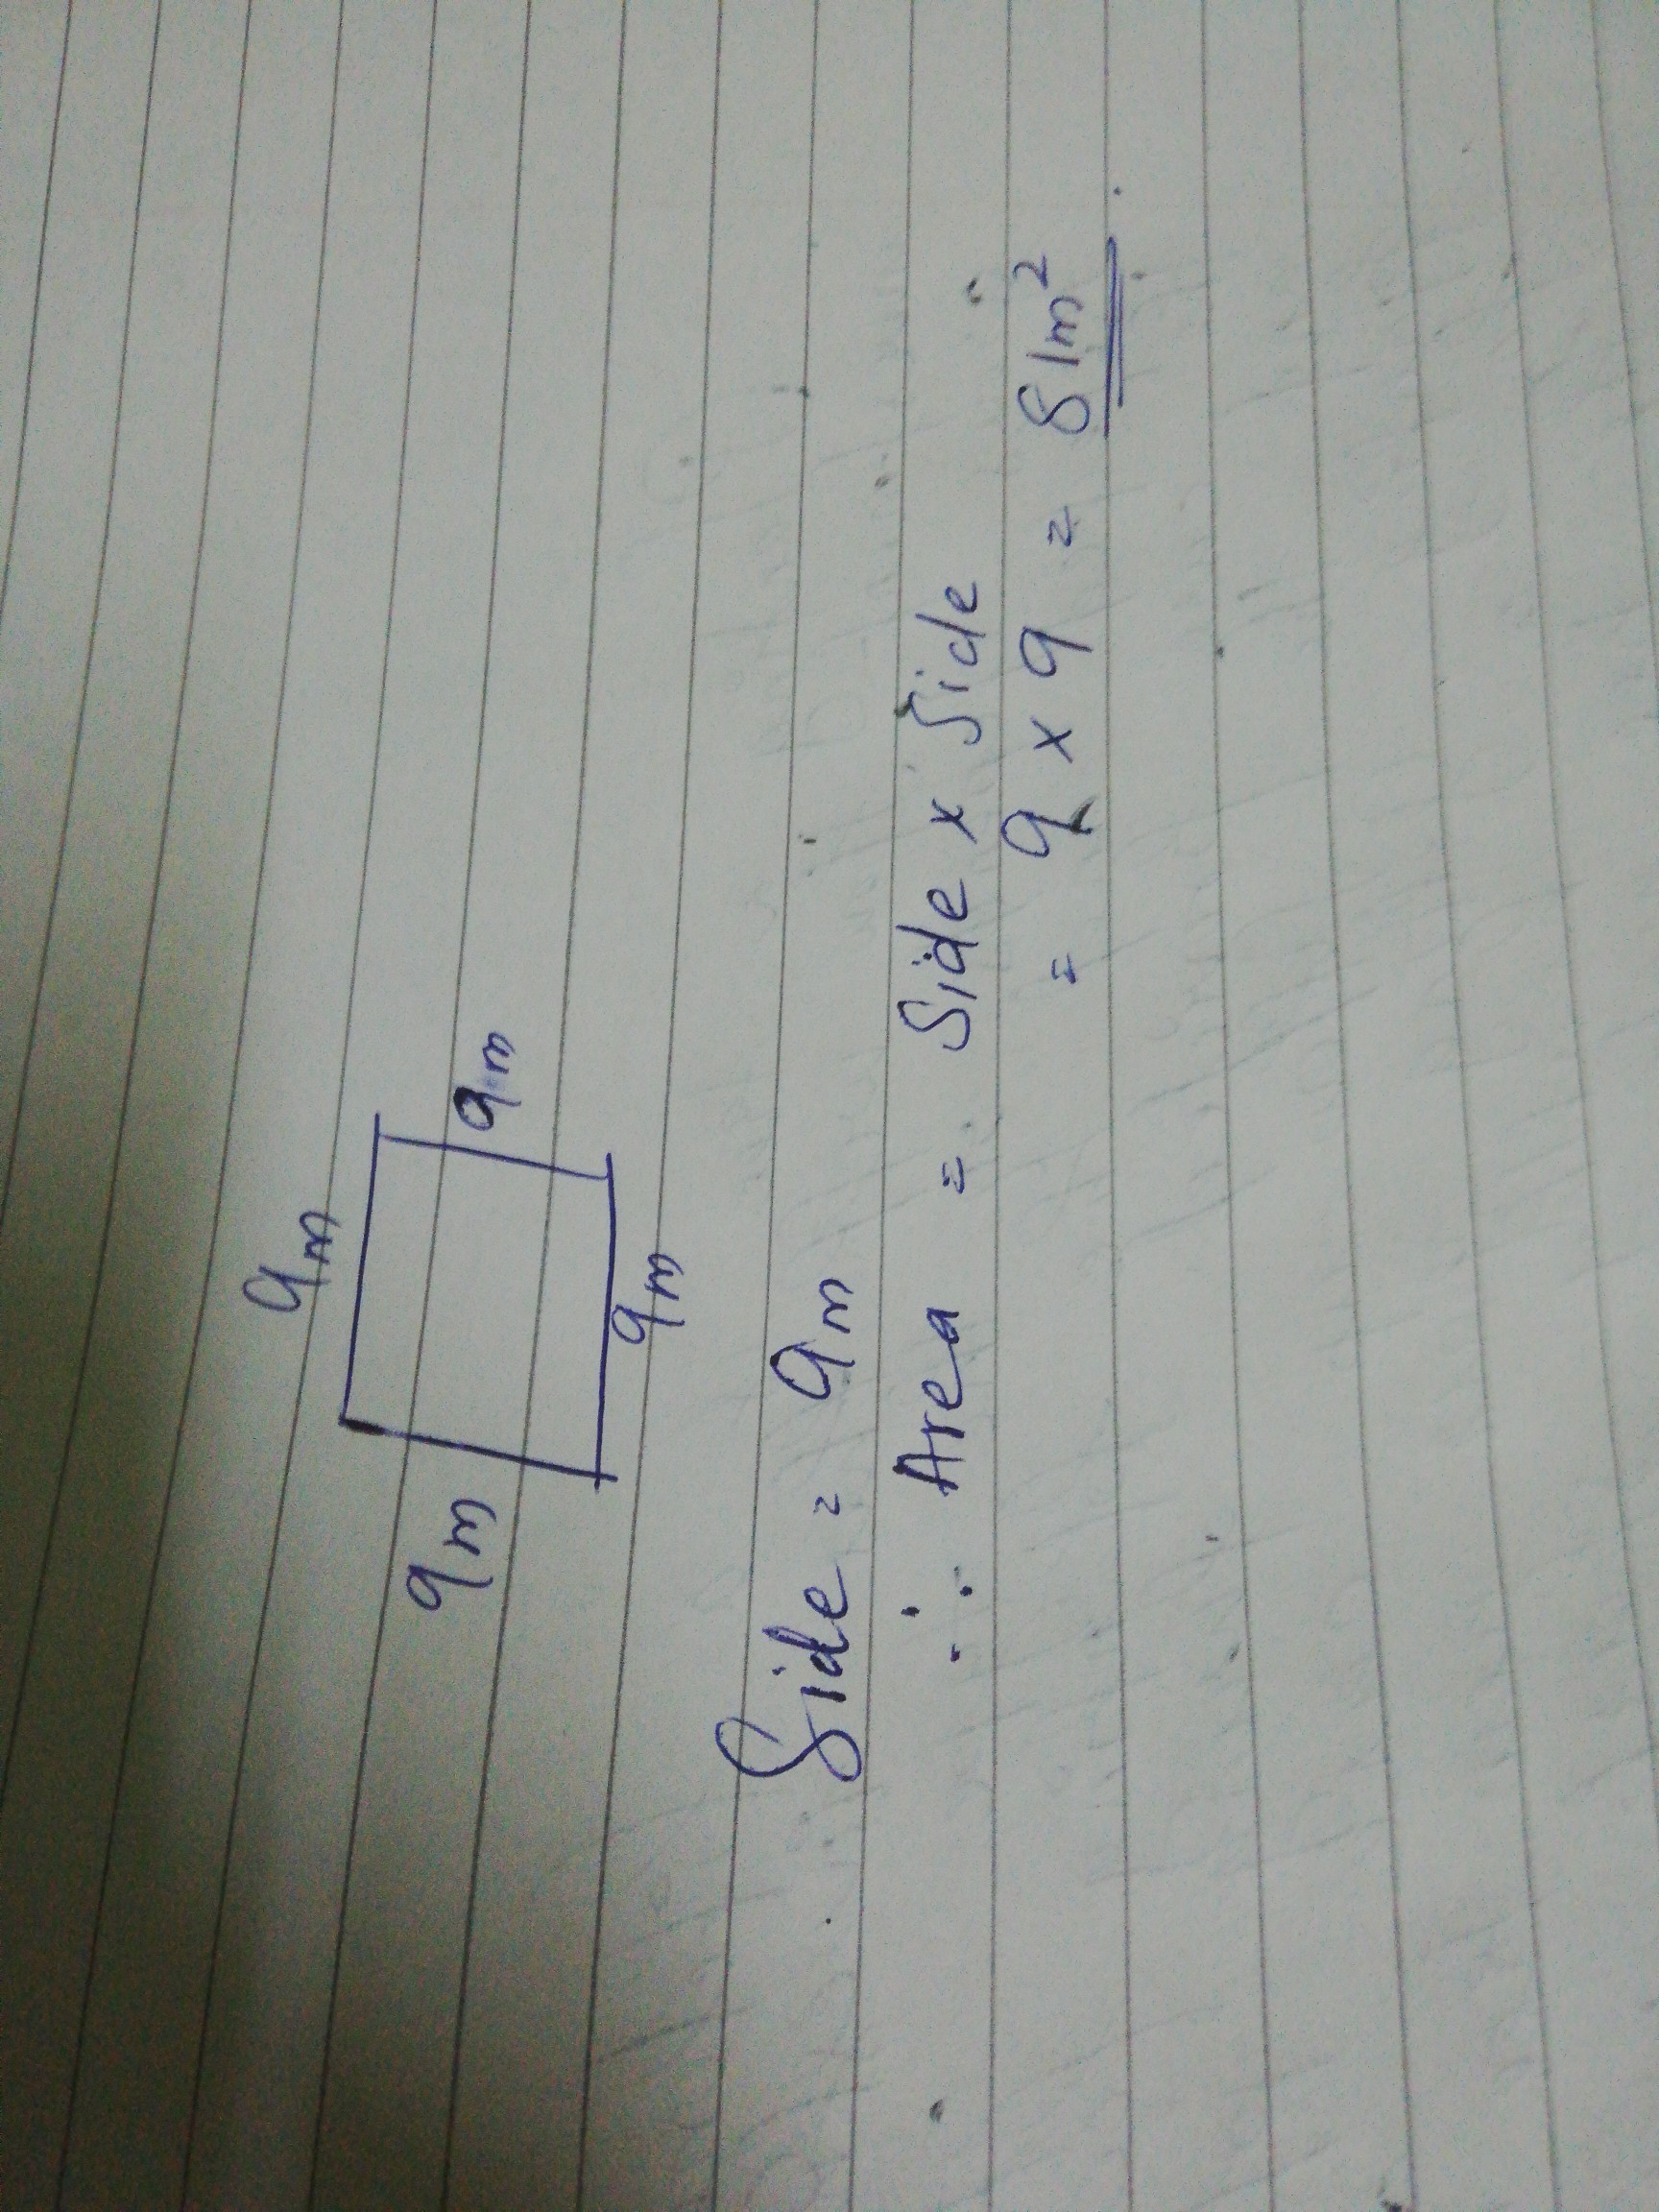 9m
9m
9m
9m
Side = 9m
∴ Area = Side x Side
= 9 x 9 = 81m²